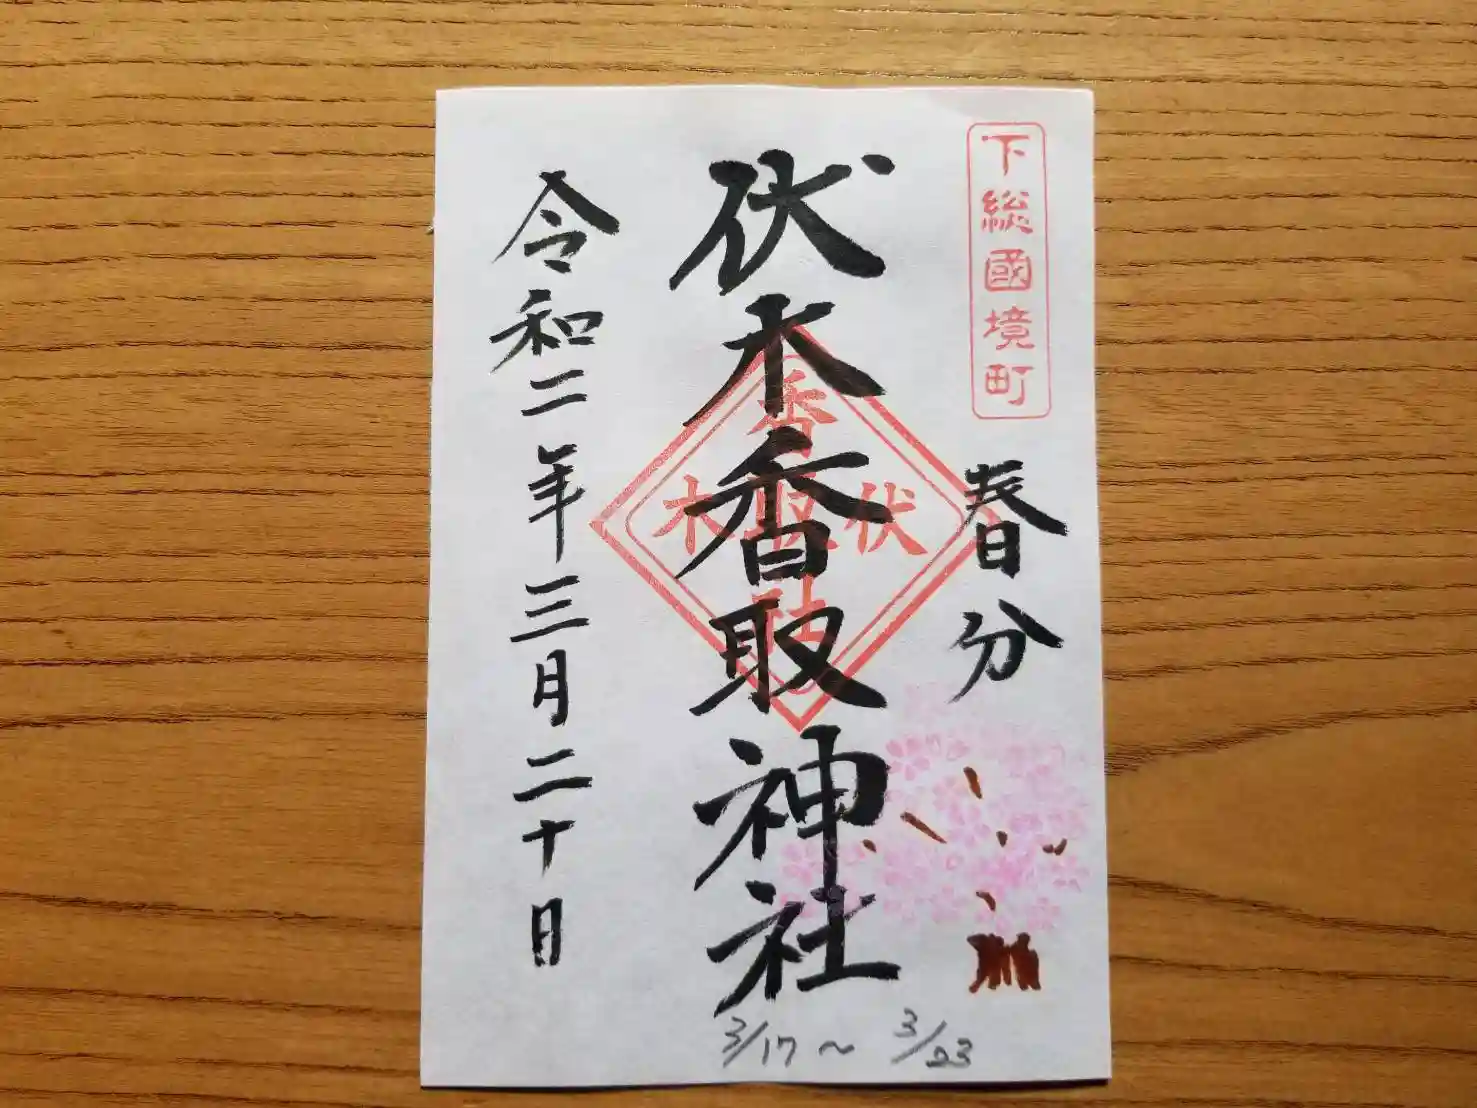 下総國境町
春分
伏木香取神社
伏木
香取
社
令和二年三月二十日
3/17 〜 3/23